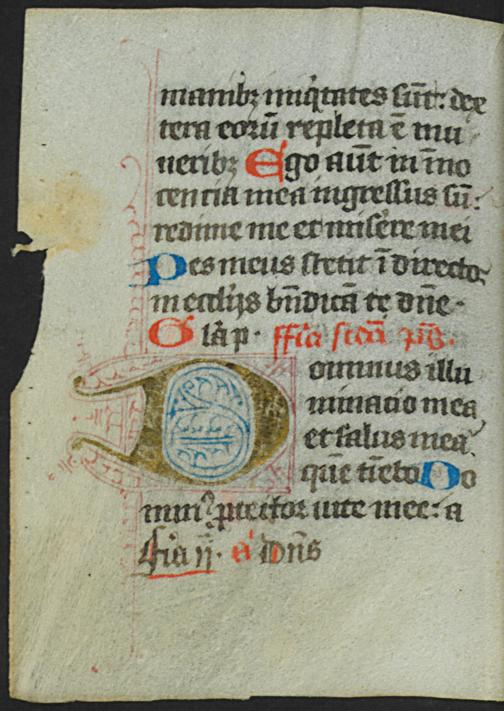 manibꝫ iniq̇tates sūt: dex
tera eorū repleta ē mu
neribꝫ Ego aūt in īno
centia mea ingressus sū:
redime me et miserere mei
Pes meus stetit ī directo
in ecclijs bn̄dicā te dn̄e.
Gla p. ffia scda ps.
Dominus illu
minatio mea
et salus mea
quē timebo Do
minꝰ ꝓtector uite mee: a
ffia ij. a Dn̄s